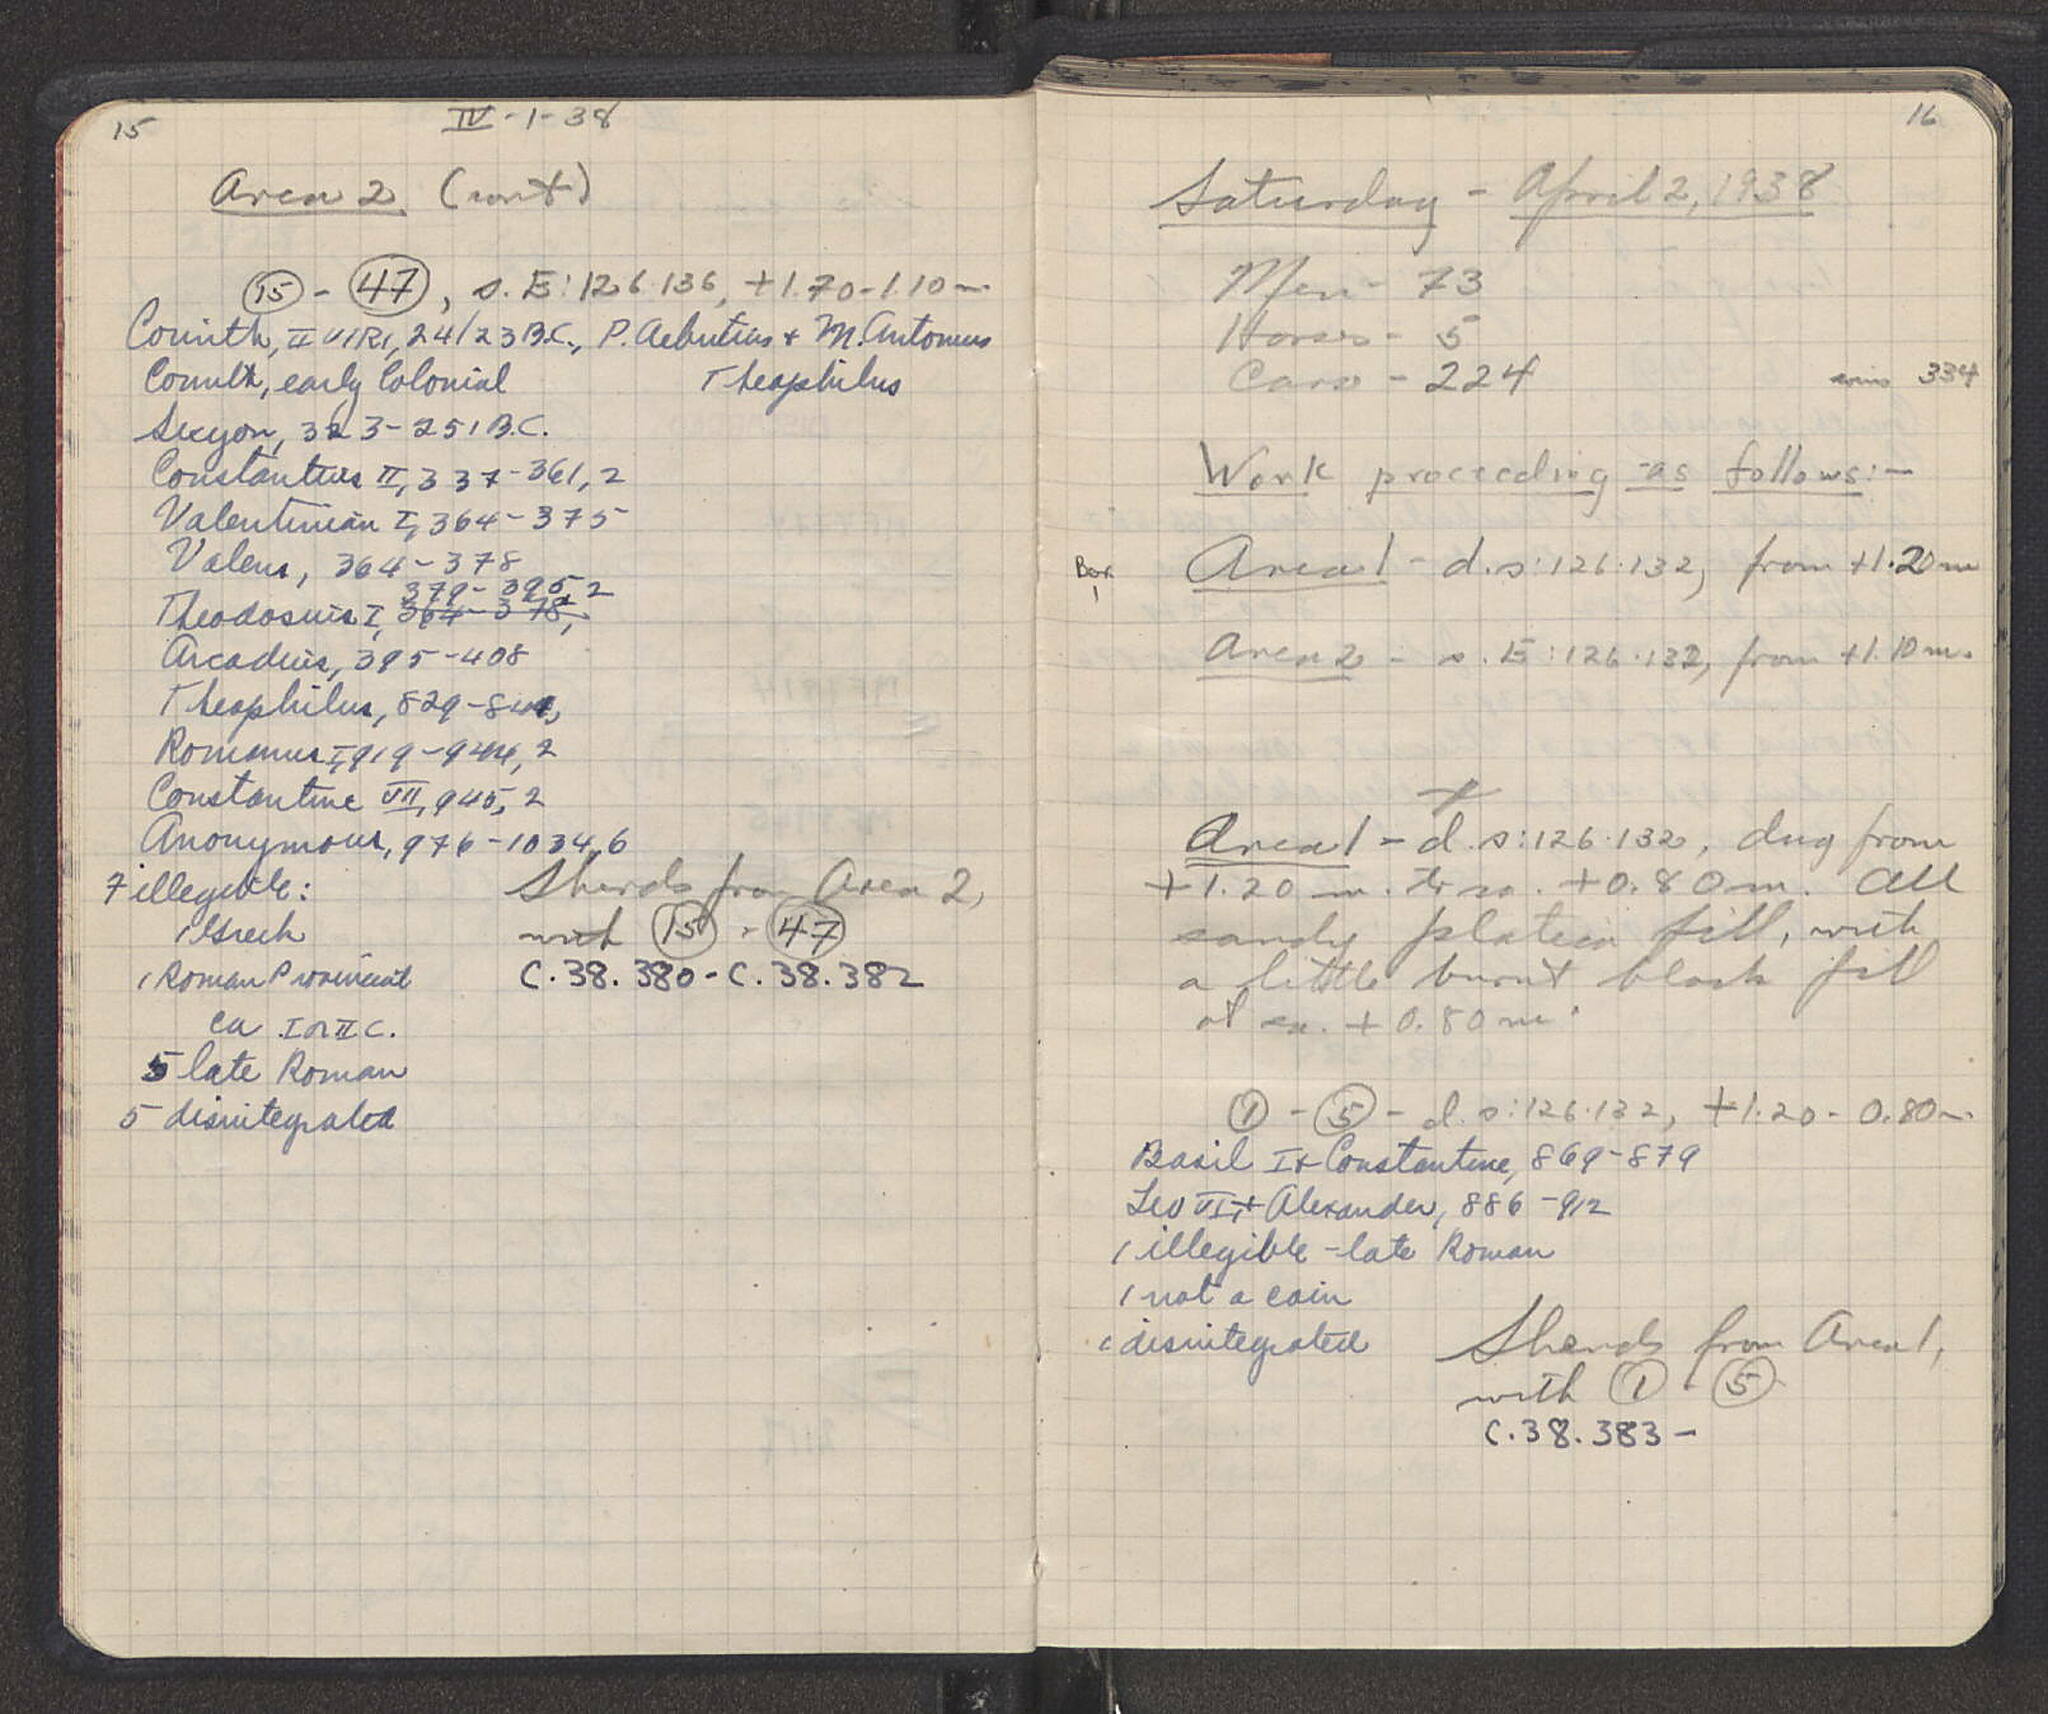 15
IV-1-38
Area 2 (cont)
15 - 47, s. E:126.136, +1.70-1.10 m.
Corinth, II VIRI, 24/23 B.C., P. Aebutius + M. Antonius
Theophilus
Corinth, early Colonial
Sicyon, 323-251 B.C.
Constantius II, 337-361, 2
Valentinian I, 364-375
Valens, 364-378
379-395, 2
Theodosius I, 364-378,
Arcadius, 395-408
Theophilus, 829-842,
Romanus I, 919-944, 2
Constantine VII, 945, 2
Anonymous, 976-1034, 6
7 illegible:
1 Greek
1 Roman Provincial
ca I or II C.
5 late Roman
5 disintegrated
Sherds from Area 2,
with 15 - 47
C.38.380-C.38.382
16
Saturday - April 2, 1938
Men - 73
Horses - 5
Cars - 224
coins 334
Work proceeding as follows:-
Bor.
1
Area 1 - d.s:126.132, from +1.20 m
Area 2 - s.E:126.132, from +1.10 m.
Area 1 - d.s:126.132, dug from
+1.20 m. to ca. +0.80 m. All
sandy plateia fill, with
a little burnt black fill
at ca. +0.80 m.
1 - 5 - d.s:126.132, +1.20 - 0.80 m.
Basil I + Constantine, 869-879
Leo VI + Alexander, 886-912
1 illegible - late Roman
1 not a coin
1 disintegrated
Sherds from Area 1,
with 1 - 5
C.38.383-